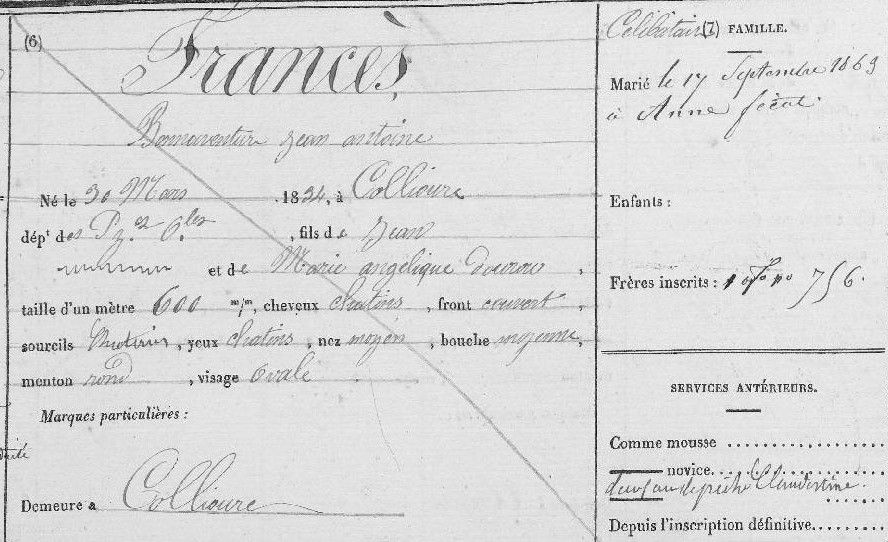 (6)
Francès,
Bonnaventure Jean antoine
Né le 30 Mars 1834, à Collioure
dépt des Pz.es O.les, fils de Jean
et de Marie angélique
taille d'un mètre 600 m/m, cheveux chatins, front couvert,
sourcils, yeux chatins, nez moyen, bouche moyenne,
menton rond, visage Ovale
Marques particulières :
Demeure a Collioure
Célibataire (7) FAMILLE.
Marié le 17 Septembre 1863
à Anne
Enfants :
Frères inscrits : 756.
SERVICES ANTÉRIEURS.
Comme mousse
novice
Clandestine.
Depuis l'inscription définitive